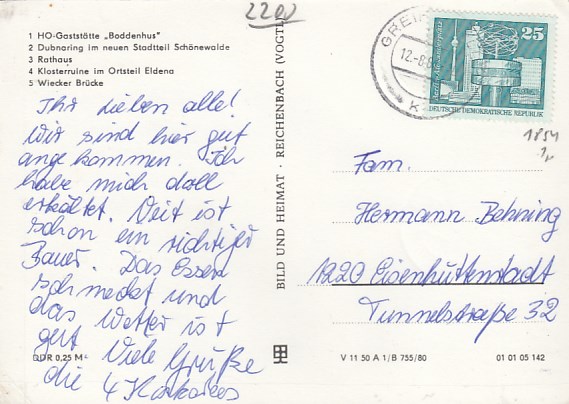 2200
1 HO-Gaststätte „Boddenhus"
2 Dubnaring im neuen Stadtteil Schönewalde
3 Rathaus
4 Klosterruine im Ortsteil Eldena
5 Wiecker Brücke
Ihr Lieben alle!
Wir sind hier gut
angekommen. Ich
habe mich doll
erkältet. Veit ist
schon ein richtiger
Bauer. Das Essen
schmeckt und
das Wetter ist
gut. Viele Grüße
die 4
DDR 0,25 M
BILD UND HEIMAT · REICHENBACH (VOGTL
GREIF
12.-8.8
25
DEUTSCHE DEMOKRATISCHE REPUBLIK
1854
Fam.
Hermann Behning
1220 Eisenhüttenstadt
Tunnelstraße 32
V 11 50 A 1/B 755/80
01 01 05 142